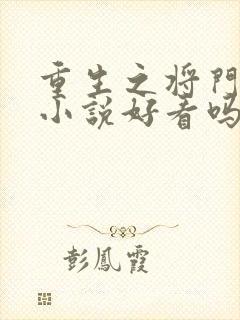 重生之将门
小说好看吗
彭鳳霞